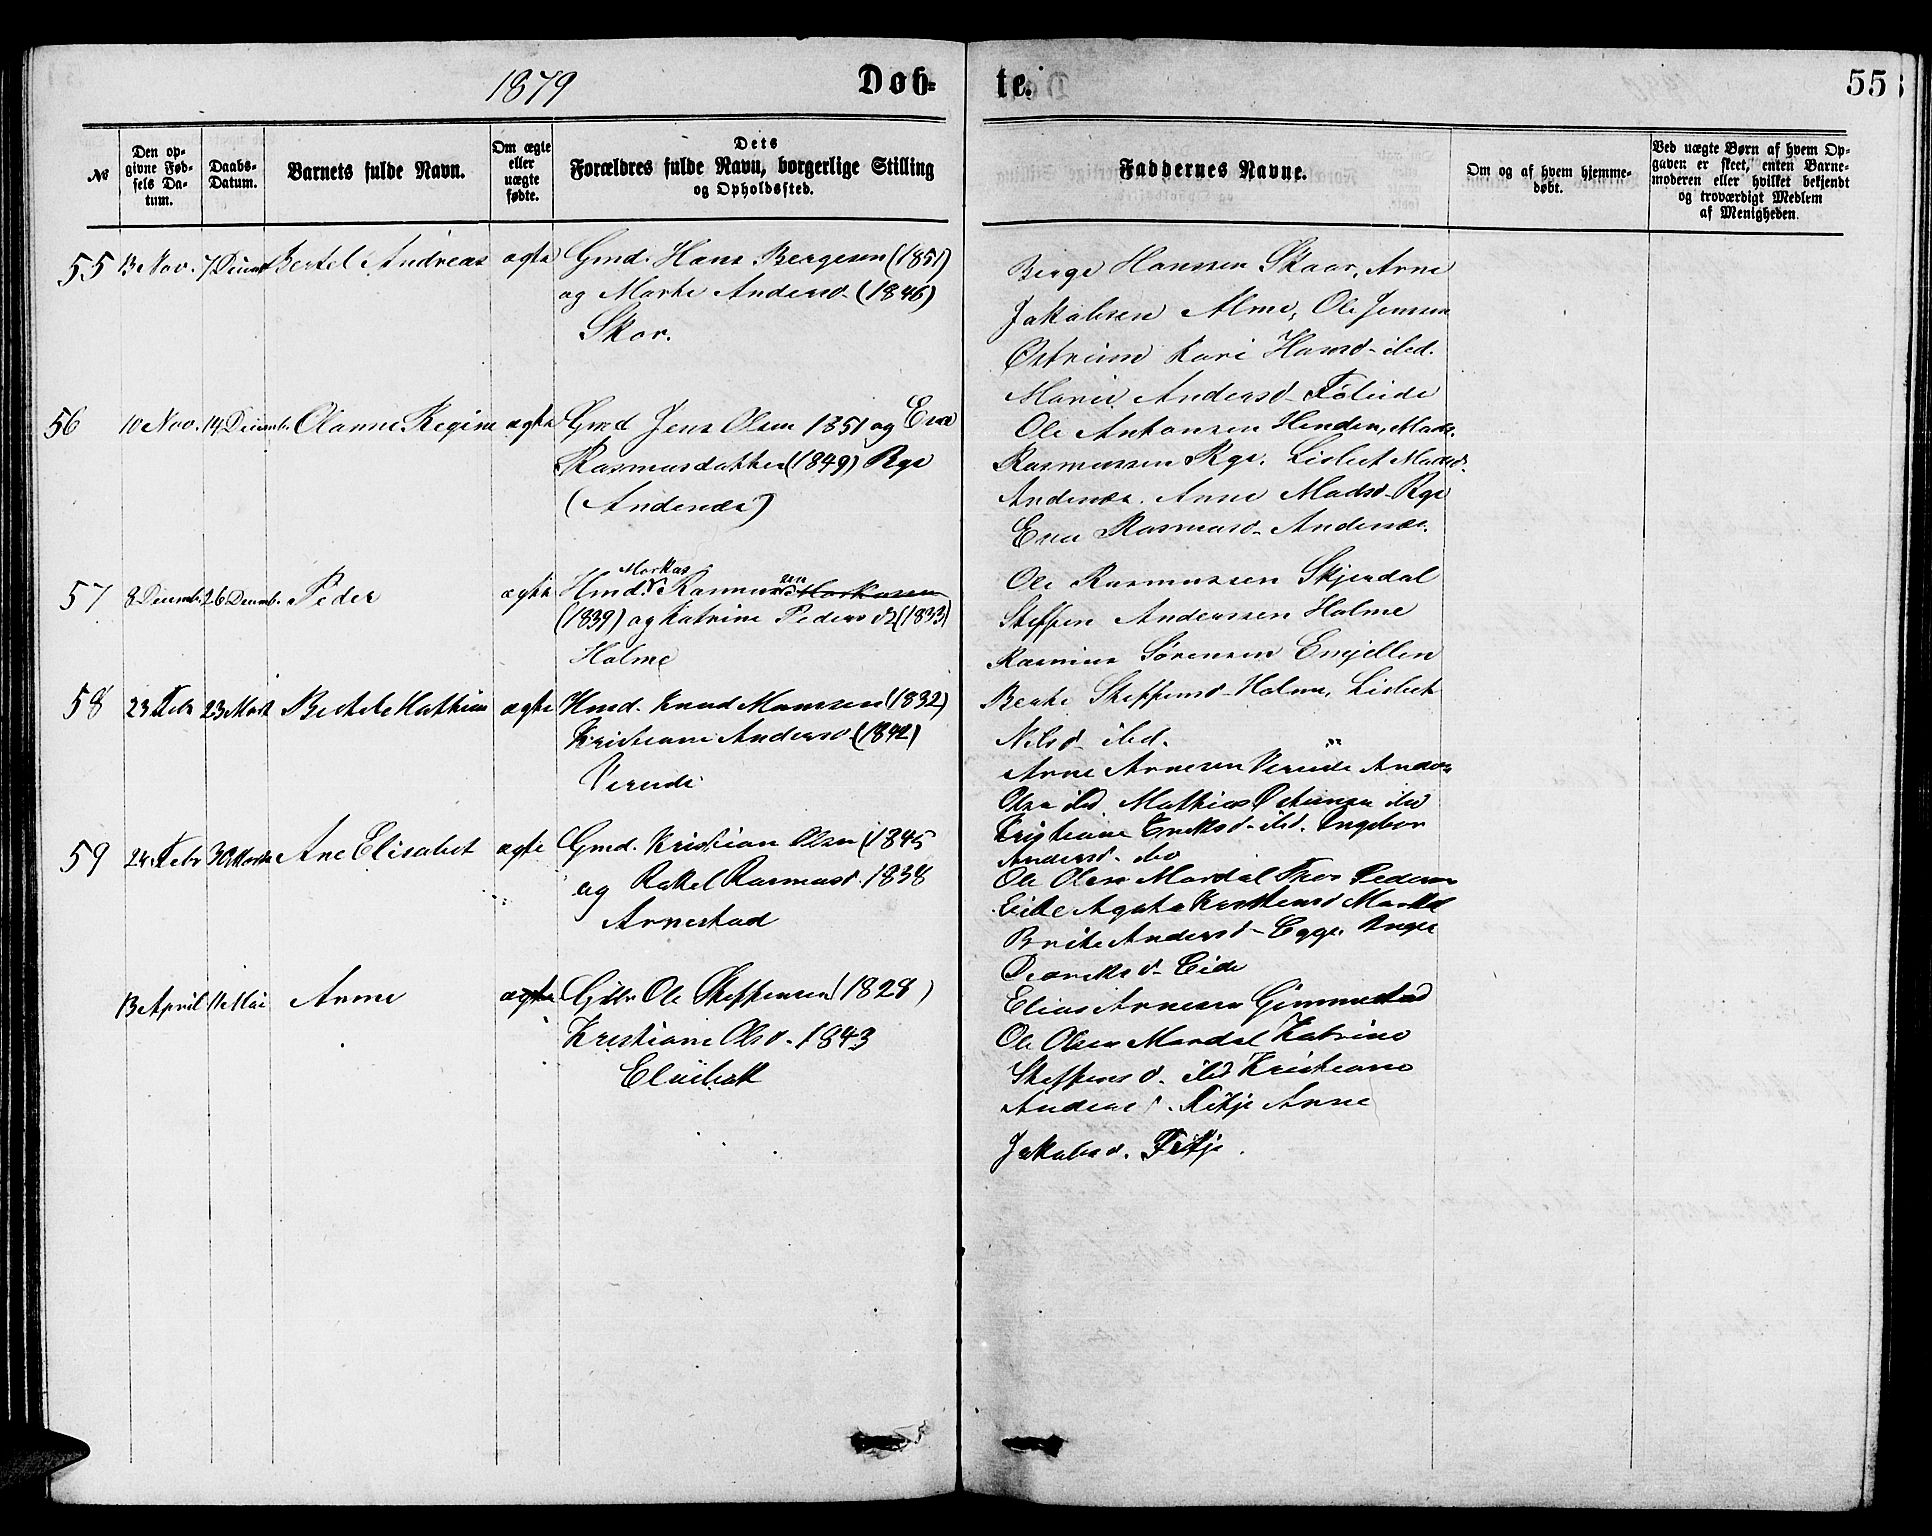 1879
Døb-
te.
55
№
Den op-
givne Fød-
sels Da-
tum.
Daabs-
Datum.
Barnets fulde Navn.
Om ægte
eller
uægte
fødte.
Dets
Forældres fulde Navn, borgerlige Stilling
og Opholdssted.
Faddernes Navne.
Om og af hvem hjemme-
døbt.
Ved uægte Børn af hvem Op-
gaven er skeet, enten Barne-
moderen eller hvilket bekjendt
og troværdigt Medlem
af Menigheden.
55 13 Nov. 7 Decemb Bertel Andreas ægte Gmd. Hans Bergesen (1851)
og Marte Andersd. (1846)
Skor.
Berge Hanssen Skaar, Arne
Jakobsen Alme, Ole Jensen
Østreim Kari Hansd. ibd.
Marie Andersd.
56 10 Nov. 14 Decemb. Olanne Regine ægte Gmd Jens Olsen 1851 og Ene
Rasmusdatter (1849) Ryg
(Andenæs)
Ole Antonsen Henden, Mads
Rasmussen Ryg. Lisbet Madsd.
Andenæs. Anne Madsd. Ryg
Ene Rasmusd. Andenæs.
57 8 Decemb. 26 Decemb. Peder ægte Hmd. Markus Rasmussen Markussen
(1839) og Katrine Pedersd (1833)
Holme
Ole Rasmussen Skjerdal
Steffen Anderssen Holme
Rasmus Sørensen Emjellen
Beate Steffensd. Holme, Lisbet
Nilsd. ibd.
58 23 Febr 23 Marts Bertele Mathine ægte Hmd. Knud Monssen (1832)
Kristiane Andersd. (1842)
Vereide
Arne Arnesen Vereide Anders
Olsen ibd Mathias ibd
Kristiane Eriksd. ibd. Ingebor
Andersd. ibd
59 24 Febr 30 Marts Ane Elisabet ægte Gmd. Kristian Olsen (1845
og Rakel Rasmusd. 1838
Arnestad
Ole Olsen Mardal Thor Pedersen
Eide Agate Kristensd Mardal
Brite Andersd. Egge. Inger
Eide
13 April 11 Mai Anne ægte Gbr Ole Steffensen (1828)
Kristiane Olsd. 1843
Elvebak
Elias Arnesen Gimmestad
Ole Olsen Mardal Katrine
Steffensd. ibd Kristiane
Andersd. Fitje Anne
Jakobsd. Fitje.